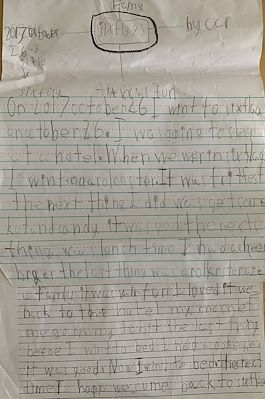 Family
2017 october
sixflags
by car
26
It was fun
On 2017 october 26 I wint to sixflag
on october 26. I was going to sleep
at a hotel. When we wer in sixflag
I wint on a rolcoster. It was fri that
the next thing I did was get some
kotandcandy. it was good the next
thing was lunch time I had a chees
brger the last thing was a
a family it was vere fun I loved it we
back to the hotel my mom let
me go on my tablit the last thing
before I wint to bed I had a
it was good. Now I wint to bed the next
time I hope we come back to sixflag